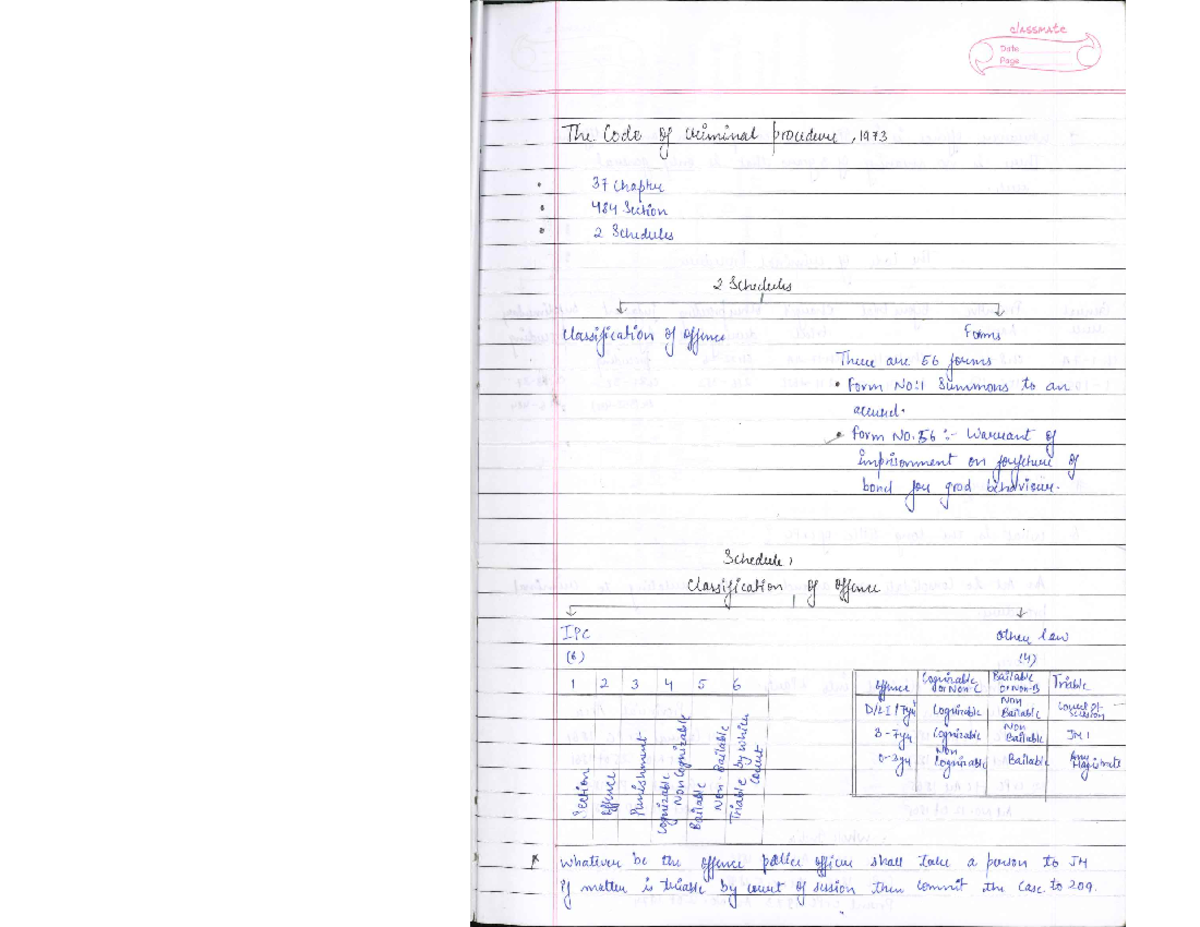 classmate
Date
Page
The Code of Criminal procedure, 1973
• 37 Chapter
• 484 Section
• 2 Schedules
2 Schedules
Classification of offence
Forms
There are 56 forms
• Form No:1 Summons to an
accused.
• Form No. 56 :- Warrant of
imprisonment on forfeture of
bond for good behaviour.
Schedule 1
Classification of offence
IPC
(6)
1 2 3 4 5 6
Section
Offence
Punishment
Cognizable
Non Cognizable
Bailable
Non-Bailable
Triable by which
court
Other law
(4)
Offence
Cognizable
or Non-C
Bailable
or Non-B
Triable
D/LI/7yr
Cognizable
Non
Bailable
Court of
session
3-7yr
Cognizable
Non
Bailable
JM1
0-3yr
Non
Cognizable
Bailable
Any
Magistrate
whatever be the offence police officer shall take a person to JM
If matter is triable by court of session then commit the case to 209.